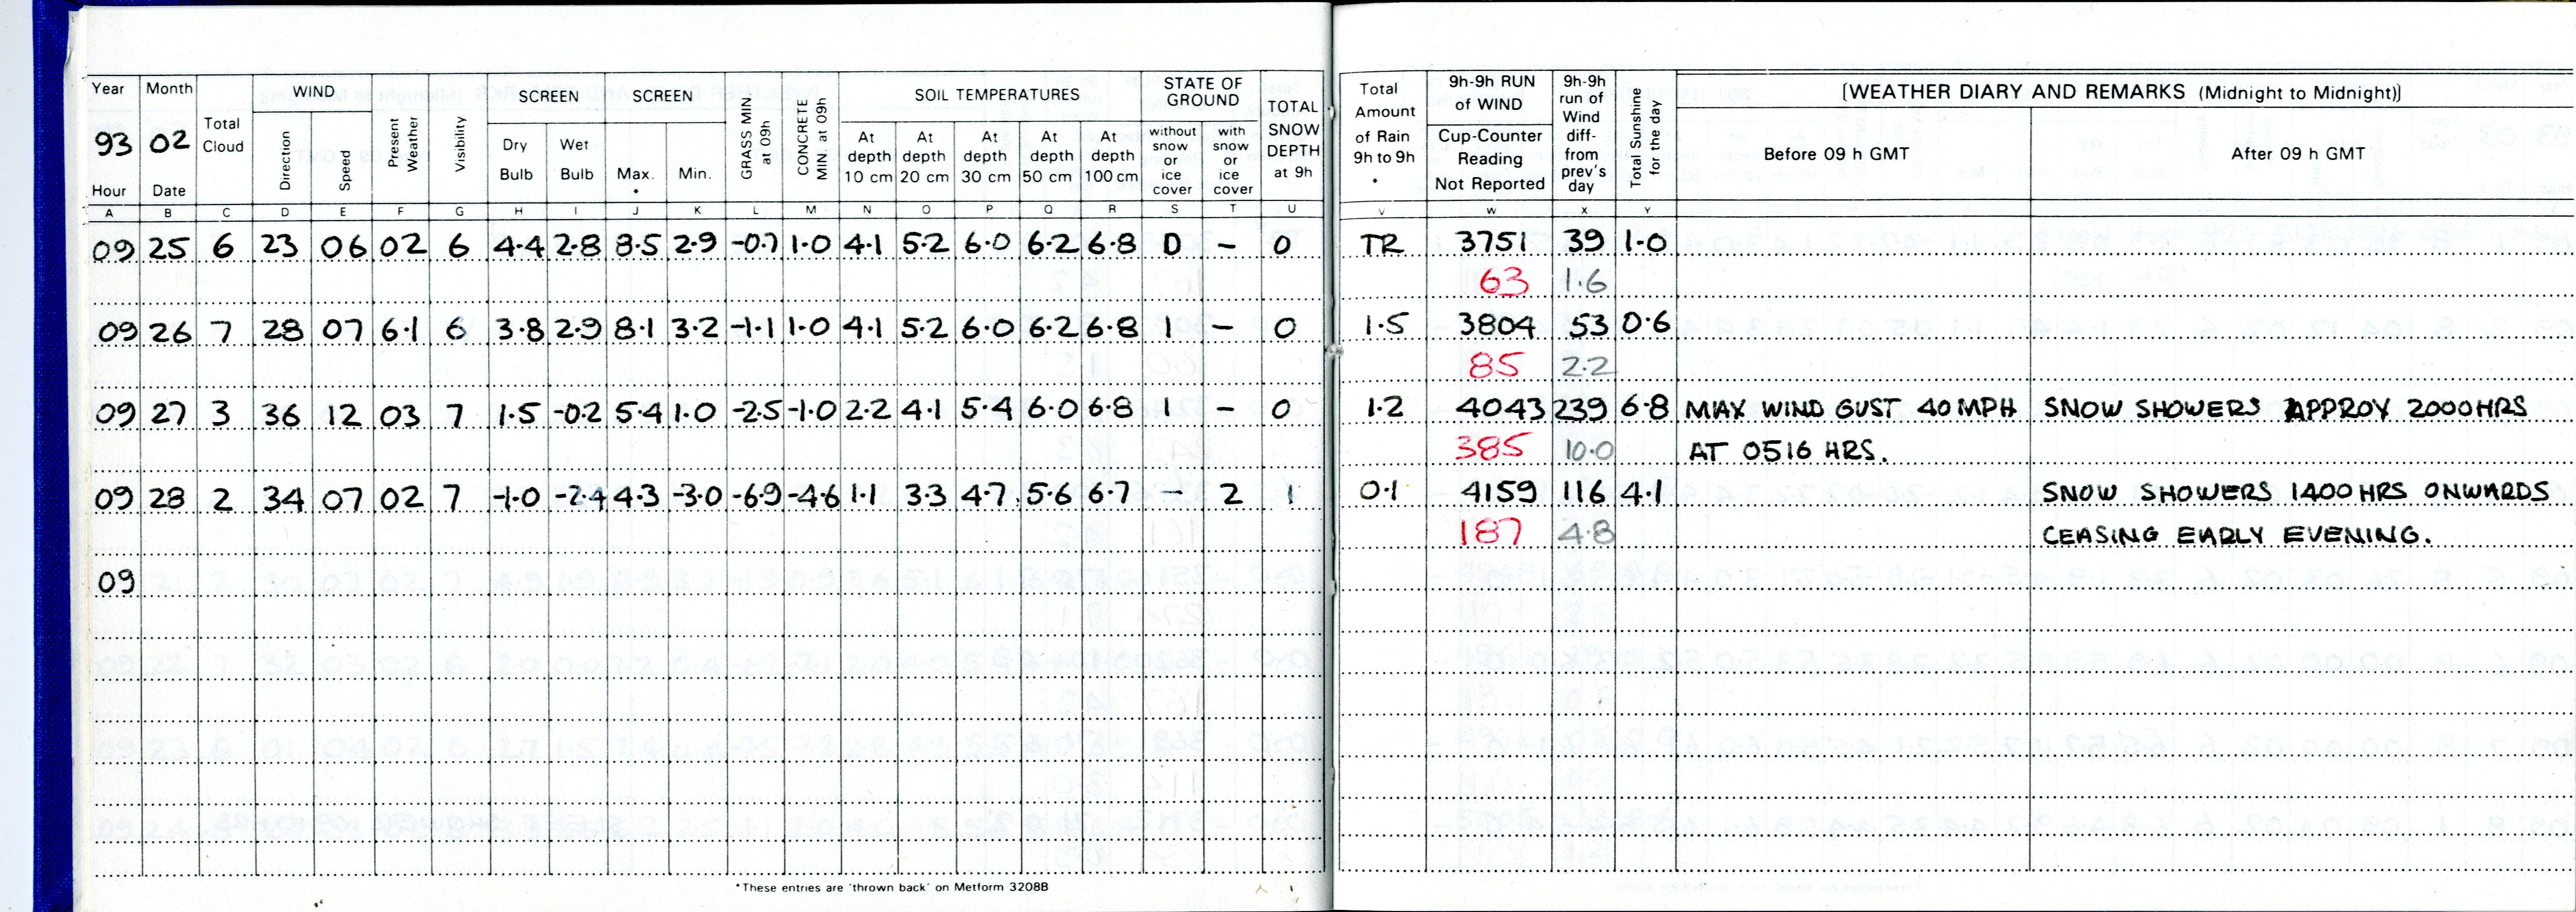 Year Month Total Cloud WIND Present Weather Visibility SCREEN SCREEN GRASS MIN at 09h CONCRETE MIN at 09h SOIL TEMPERATURES STATE OF GROUND TOTAL SNOW DEPTH at 9h Total Amount of Rain 9h to 9h * 9h-9h RUN of WIND 9h-9h run of Wind diff-from prev's day Total Sunshine for the day [WEATHER DIARY AND REMARKS (Midnight to Midnight)]
93 02 Direction Speed Dry Bulb Wet Bulb Max. * Min. At depth 10 cm At depth 20 cm At depth 30 cm At depth 50 cm At depth 100 cm without snow or ice cover with snow or ice cover Cup-Counter Reading Not Reported Before 09 h GMT After 09 h GMT
Hour Date
A B C D E F G H I J K L M N O P Q R S T U V W X Y
09 25 6 23 06 02 6 4.4 2.8 8.5 2.9 -0.7 1.0 4.1 5.2 6.0 6.2 6.8 0 - 0 TR 3751 39 1.0
63 1.6
09 26 7 28 07 61 6 3.8 2.9 8.1 3.2 -1.1 1.0 4.1 5.2 6.0 6.2 6.8 1 - 0 1.5 3804 53 0.6
85 2.2
09 27 3 36 12 03 7 1.5 -0.2 5.4 1.0 -2.5 -1.0 2.2 4.1 5.4 6.0 6.8 1 - 0 1.2 4043 239 6.8 MAX WIND GUST 40 MPH SNOW SHOWERS APPROX 2000HRS
385 10.0 AT 0516 HRS.
09 28 2 34 07 02 7 -1.0 -2.4 4.3 -3.0 -6.9 -4.6 1.1 3.3 4.7 5.6 6.7 - 2 1 0.1 4159 116 4.1 SNOW SHOWERS 1400HRS ONWARDS
187 4.8 CEASING EARLY EVENING.
09
*These entries are 'thrown back' on Metform 3208B